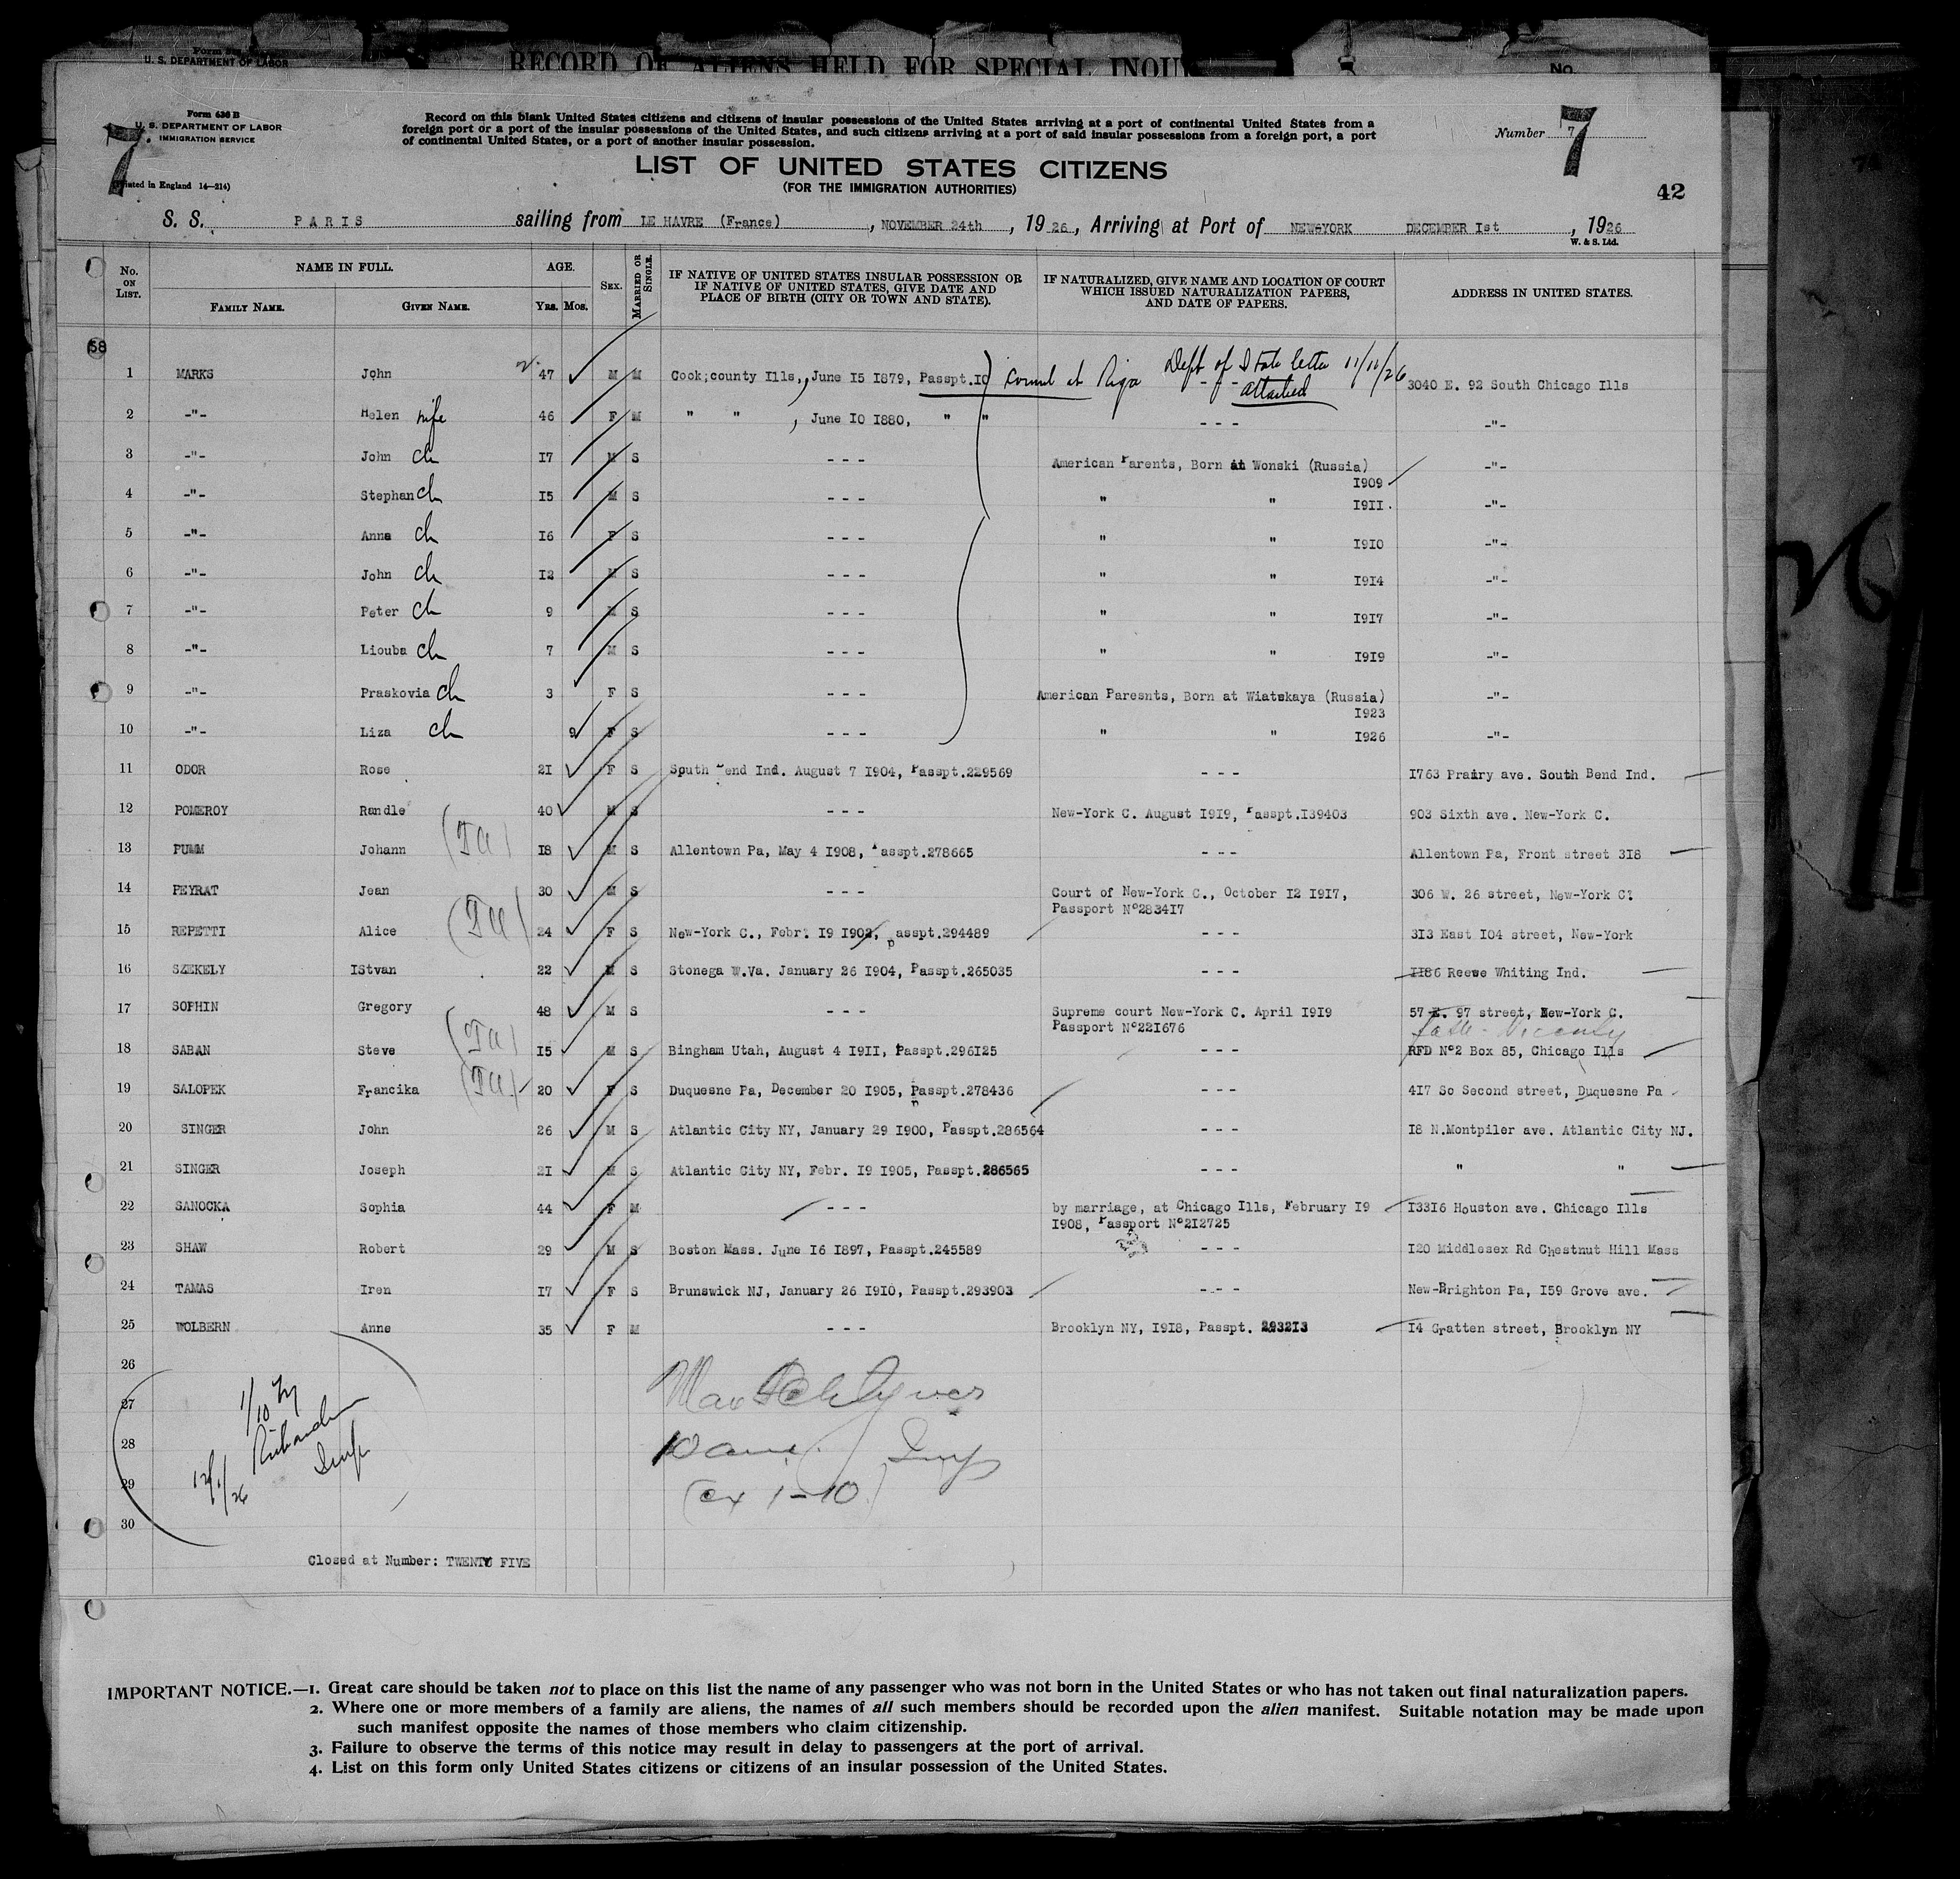 Form
U. S. DEPARTMENT OF LABOR
RECORD OF ALIENS HELD FOR SPECIAL INQUI
No.
Form 636 B
U. S. DEPARTMENT OF LABOR
IMMIGRATION SERVICE
(Printed in England 14—214)
7.
Record on this blank United States citizens and citizens of insular possessions of the United States arriving at a port of continental United States from a
foreign port or a port of the insular possessions of the United States, and such citizens arriving at a port of said insular possessions from a foreign port, a port
of continental United States, or a port of another insular possession.
Number 7
7
LIST OF UNITED STATES CITIZENS
(FOR THE IMMIGRATION AUTHORITIES)
42
S. S. PARIS sailing from LE HAVRE (France), NOVEMBER 24th, 1926, Arriving at Port of NEW-YORK DECEMBER Ist, 1926
W. & S. Ltd.
No. ON LIST. NAME IN FULL. FAMILY NAME. GIVEN NAME. AGE. YRS. MOS. SEX. MARRIED OR SINGLE. IF NATIVE OF UNITED STATES INSULAR POSSESSION OR IF NATIVE OF UNITED STATES, GIVE DATE AND PLACE OF BIRTH (CITY OR TOWN AND STATE). IF NATURALIZED, GIVE NAME AND LOCATION OF COURT WHICH ISSUED NATURALIZATION PAPERS, AND DATE OF PAPERS. ADDRESS IN UNITED STATES.
58
1 MARKS John 47 M M Cook;county Ills,,June I5 I879, Passpt.IC Consul at Riga Dept of State letter 11/11/26 attached 3040 E. 92 South Chicago Ills
2 -"- Helen wife 46 F M " " , June IO I880, " " - - - -"-
3 -"- John ch I7 M S - - - American Parents, Born at Wonski (Russia) -"-
I909
4 -"- Stephan ch I5 M S - - - " " I9II. -"-
5 -"- Anna ch I6 F S - - - " " I9I0 -"-
6 -"- John ch I2 M S - - - " " I9I4 -"-
7 -"- Peter ch 9 M S - - - " " I9I7 -"-
8 -"- Liouba ch 7 M S - - - " " I9I9 -"-
9 -"- Praskovia ch 3 F S - - - American Paresnts, Born at Wiatskaya (Russia) -"-
I923
10 -"- Liza ch 9 F S - - - " " I926 -"-
11 ODOR Rose 2I F S South Bend Ind. August 7 I904, Passpt.229569 - - - I763 Prairy ave. South Bend Ind.
12 POMEROY Randle 40 M S - - - New-York C. August I9I9, Passpt.I39403 903 Sixth ave. New-York C.
13 PUMM Johann I8 M S Allentown Pa, May 4 I908, Passpt.278665 - - - Allentown Pa, Front street 3I8
14 PEYRAT Jean 30 M S - - - Court of New-York C., October I2 I9I7, 306 W. 26 street, New-York C.
Passport N°2834I7
15 REPETTI Alice 24 F S New-York C., Febr. I9 I902, passpt.294489 - - - 3I3 East I04 street, New-York
16 SZEKELY IStvan 22 M S Stonega W.Va. January 26 I904, Passpt.265035 - - - II86 Reewe Whiting Ind.
17 SOPHIN Gregory 48 M S - - - Supreme court New-York C. April I9I9 57 E. 97 street, New-York C.
Passport N°22I676
18 SABAN Steve I5 M S Bingham Utah, August 4 I9II, Passpt.296I25 - - - RFD N°2 Box 85, Chicago Ills
19 SALOPEK Francika 20 F S Duquesne Pa, December 20 I905, Passpt.278436 - - - 4I7 So Second street, Duquesne Pa
20 SINGER John 26 M S Atlantic City NY, January 29 I900, Passpt.286564 - - - I8 N.Montpiler ave. Atlantic City NJ.
21 SINGER Joseph 2I M S Atlantic City NY, Febr. I9 I905, Passpt.286565 - - - " "
22 SANOCKA Sophia 44 F M - - - by marriage, at Chicago Ills, February I9 I33I6 Houston ave. Chicago Ills
I908, Passport N°2I2725
23 SHAW Robert 29 M S Boston Mass. June I6 I897, Passpt.245589 - - - I20 Middlesex Rd Chestnut Hill Mass
24 TAMAS Iren I7 F S Brunswick NJ, January 26 I9I0, Passpt.293903 - - - New-Brighton Pa, I59 Grove ave.
25 WOLBERN Anne 35 F M - - - Brooklyn NY, I9I8, Passpt. 2932I3 I4 Gratten street, Brooklyn NY
26
27
28
29
30
1/10 by
Insp
12/1/26
Insp
(ex 1-10)
Closed at Number: TWENTY FIVE
IMPORTANT NOTICE.—1. Great care should be taken not to place on this list the name of any passenger who was not born in the United States or who has not taken out final naturalization papers.
2. Where one or more members of a family are aliens, the names of all such members should be recorded upon the alien manifest. Suitable notation may be made upon
such manifest opposite the names of those members who claim citizenship.
3. Failure to observe the terms of this notice may result in delay to passengers at the port of arrival.
4. List on this form only United States citizens or citizens of an insular possession of the United States.